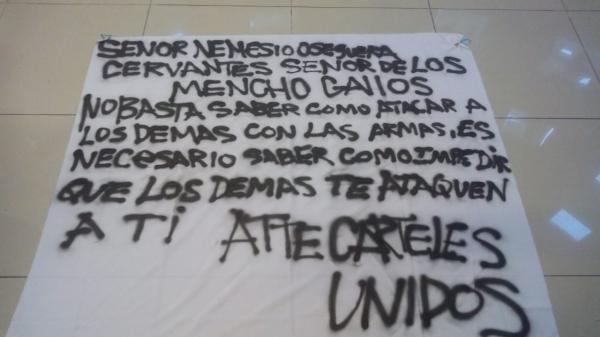 SEÑOR NEMESIO OSEGUERA
CERVANTES SEÑOR DE LOS
MENCHO GALLOS
NO BASTA SABER COMO ATACAR A
LOS DEMAS CON LAS ARMAS, ES
NECESARIO SABER COMO IMPEDIR
QUE LOS DEMAS TE ATAQUEN
A TI ATTE CARTELES
UNIDOS